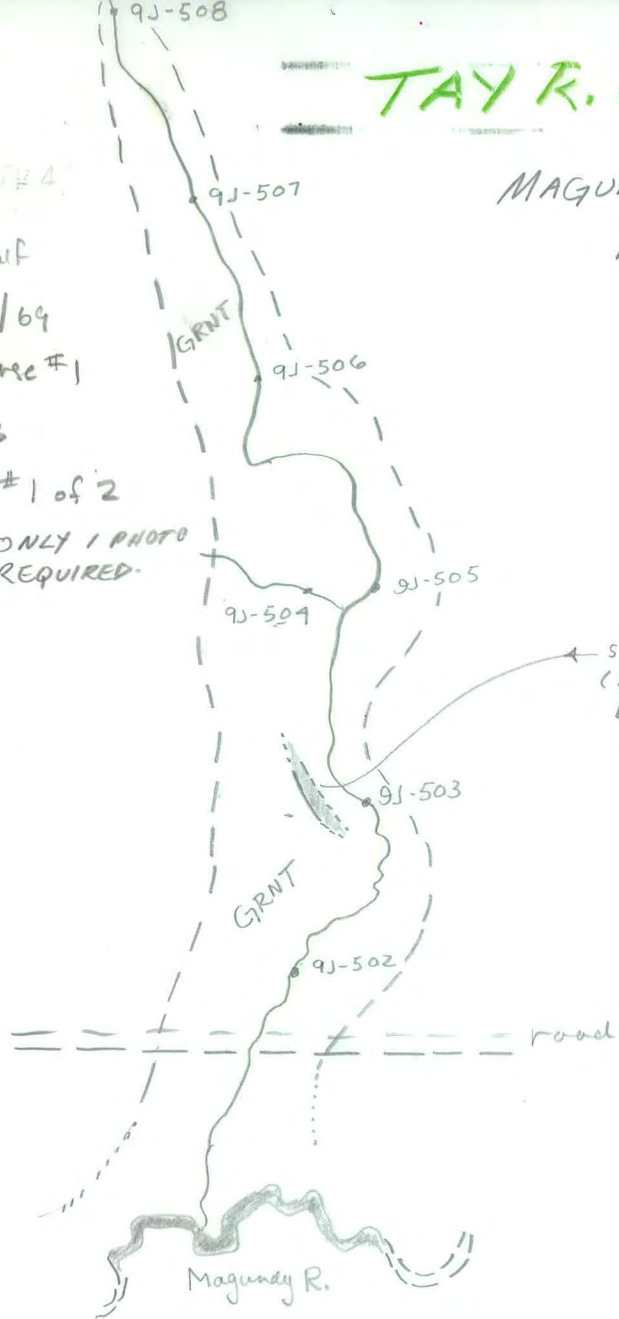 9J-508
TAY R.
9J-507
GRNT
/69
#1
9J-506
#1 of 2
ONLY 1 PHOTO
REQUIRED.
9J-505
9J-504
9J-503
GRNT
9J-502
road
Magundy R.